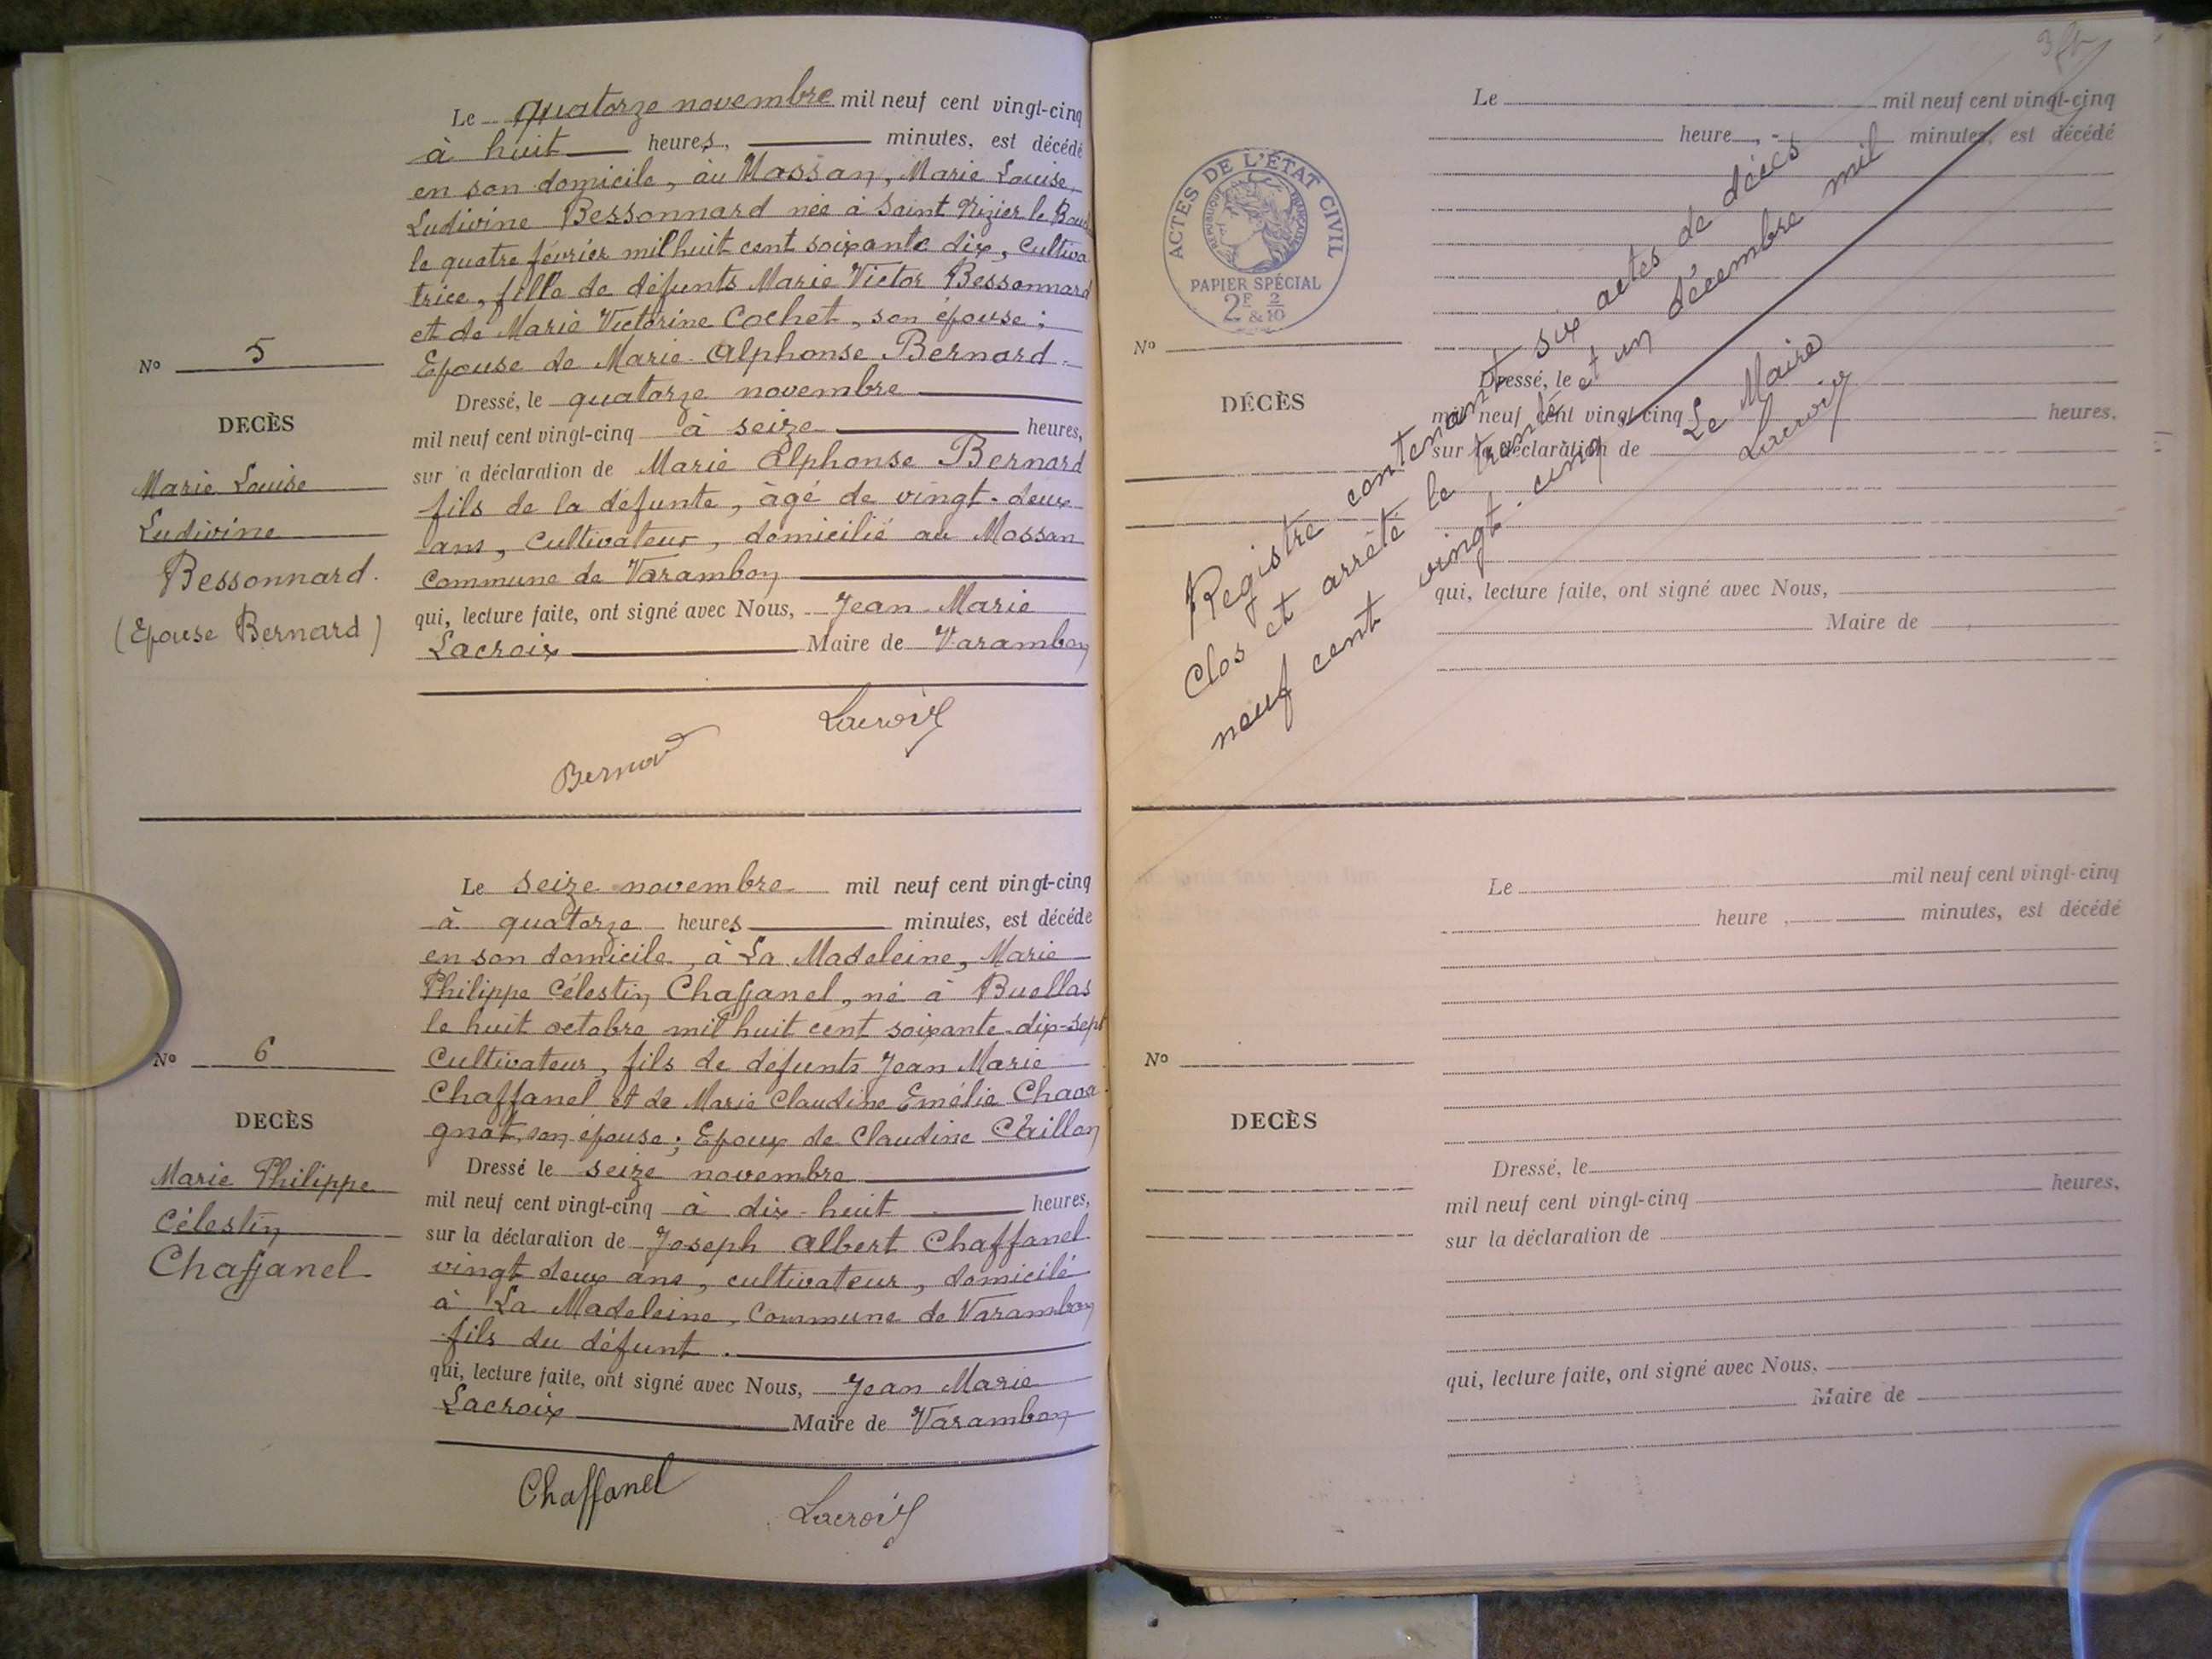 Le quatorze novembre mil neuf cent vingt-cinq
à huit heures, minutes, est décédé
en son domicile, au Mossan, Marie Louise
Ludivine Bessonnard née à Saint Nizier le
le quatre février mil huit cent soixante dix, Cultiva
trice, fille de défunts Marie Victor Bessonnard
et de Marie Victorine Cochet, son épouse ;
Epouse de Marie Alphonse Bernard.
Dressé, le quatorze novembre
mil neuf cent vingt-cinq à seize heures,
sur la déclaration de Marie Alphonse Bernard
fils de la défunte, âgé de vingt-deux
ans, Cultivateur, domicilié au Mossan
Commune de Varambon
qui, lecture faite, ont signé avec Nous, Jean-Marie
Lacroix Maire de Varambon
No 5
DECÈS
Marie Louise
Ludivine
Bessonnard.
(Epouse Bernard)
Lacroix
Bernard
Le seize novembre mil neuf cent vingt-cinq
à quatorze heures minutes, est décédé
en son domicile, à La Madeleine, Marie
Philippe Célestin Chaffanel, né à Buellas
le huit octobre mil huit cent soixante-dix-sept
Cultivateur, fils de défunts Jean Marie
Chaffanel et de Marie Claudine Emélie Chava-
gnat, son épouse ; Epoux de Claudine
Dressé le seize novembre
mil neuf cent vingt-cinq à dix-huit heures,
sur la déclaration de Joseph Albert Chaffanel
vingt deux ans, cultivateur, domicilé
à La Madeleine, Commune de Varambon
fils du défunt.
qui, lecture faite, ont signé avec Nous, Jean Marie
Lacroix Maire de Varambon
No 6
DECÈS
Marie Philippe
Célestin
Chaffanel
Chaffanel
Lacroix
ACTES DE L'ÉTAT CIVIL
RÉPUBLIQUE FRANÇAISE
PAPIER SPÉCIAL
2F & 2/10
Le mil neuf cent vingt-cinq
heure, minutes, est décédé
No
DÉCÈS
Dressé, le
mil neuf cent vingt-cinq heures.
sur la déclaration de
qui, lecture faite, ont signé avec Nous,
Maire de
Registre contenant six actes de décès
Clos et arrêté le trente et un décembre mil
neuf cent vingt-cinq
Le Maire
Lacroix
Le mil neuf cent vingt-cinq
heure, minutes, est décédé
No
DECÈS
Dressé, le
mil neuf cent vingt-cinq heures,
sur la déclaration de
qui, lecture faite, ont signé avec Nous,
Maire de